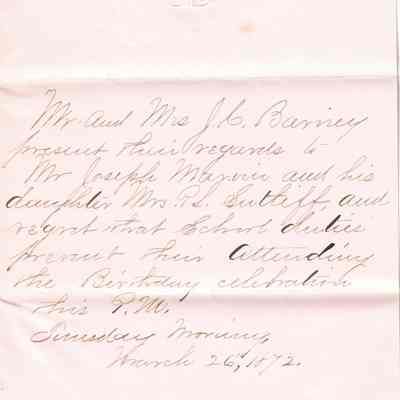 Mr. and Mrs J. C. Barney
present their regards to
Mr Joseph Marvin and his
daughter Mrs. P.L. Sutliff, and
regret that School duties
prevent their attending
the Birthday celebration
this P.M.
Tuesday Morning,
March 26, 1872.